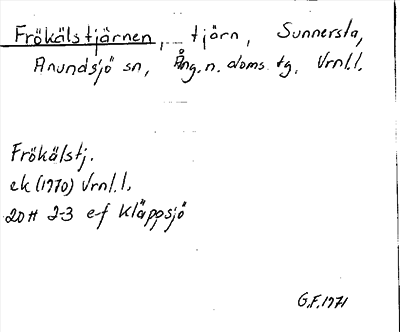 Frökälstjärnen, tjärn, Sunnersta,
Anundsjö sn, Ång.n.doms.tg. Vrnl.l.
Frökälstj.
ek (1970) Vrnl.l.
20H 2-3 e-f Kläppsjö
G.F. 1971